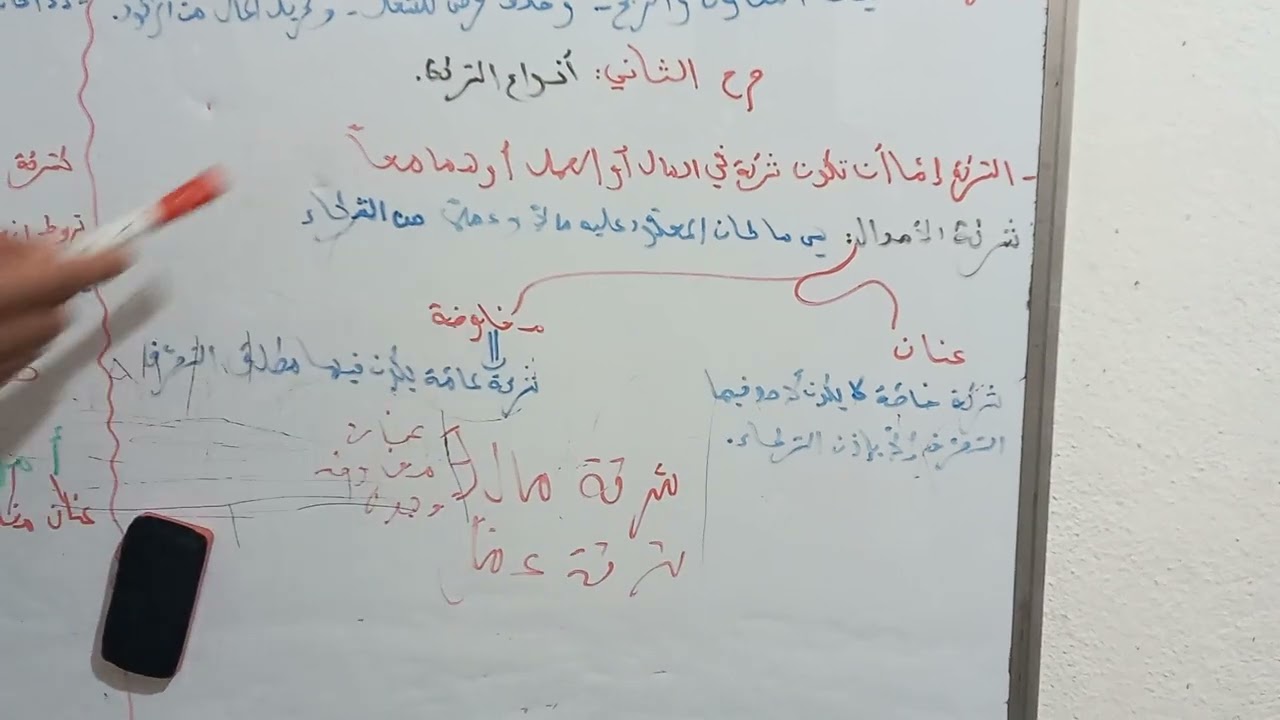 وخلق فرص للشغل - وتحريك المال من الركود.
فرع الثاني: أنواع الشركة.
- الشركة إما أن تكون شركة في المال أو العمل أو هما معاً
شركة الأموال: هي ما كان المعقود عليه مالا وعملا من الشركاء
مفاوضة
عنان
شركة عامة يكون فيها مطلق التصرف
شركة خاصة لا يكون لأحد فيها
التصرف إلا بإذن الشركاء.
شركة مال
عنان
مفاوضة
وجوه
شركة عمل
كشركة
شروط
عنان